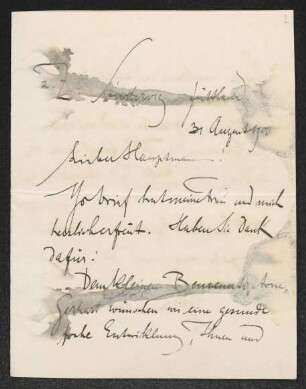 2.
Jütland
31 August 190
Lieber Hauptmann!
Ihr Brief hat meine Frau und mich
herzlich erfreut. Haben Sie Dank
dafür!
Dem kleinen Benvenuto
Gerhart wünschen wir eine gesunde
frohe Entwicklung, Ihnen und